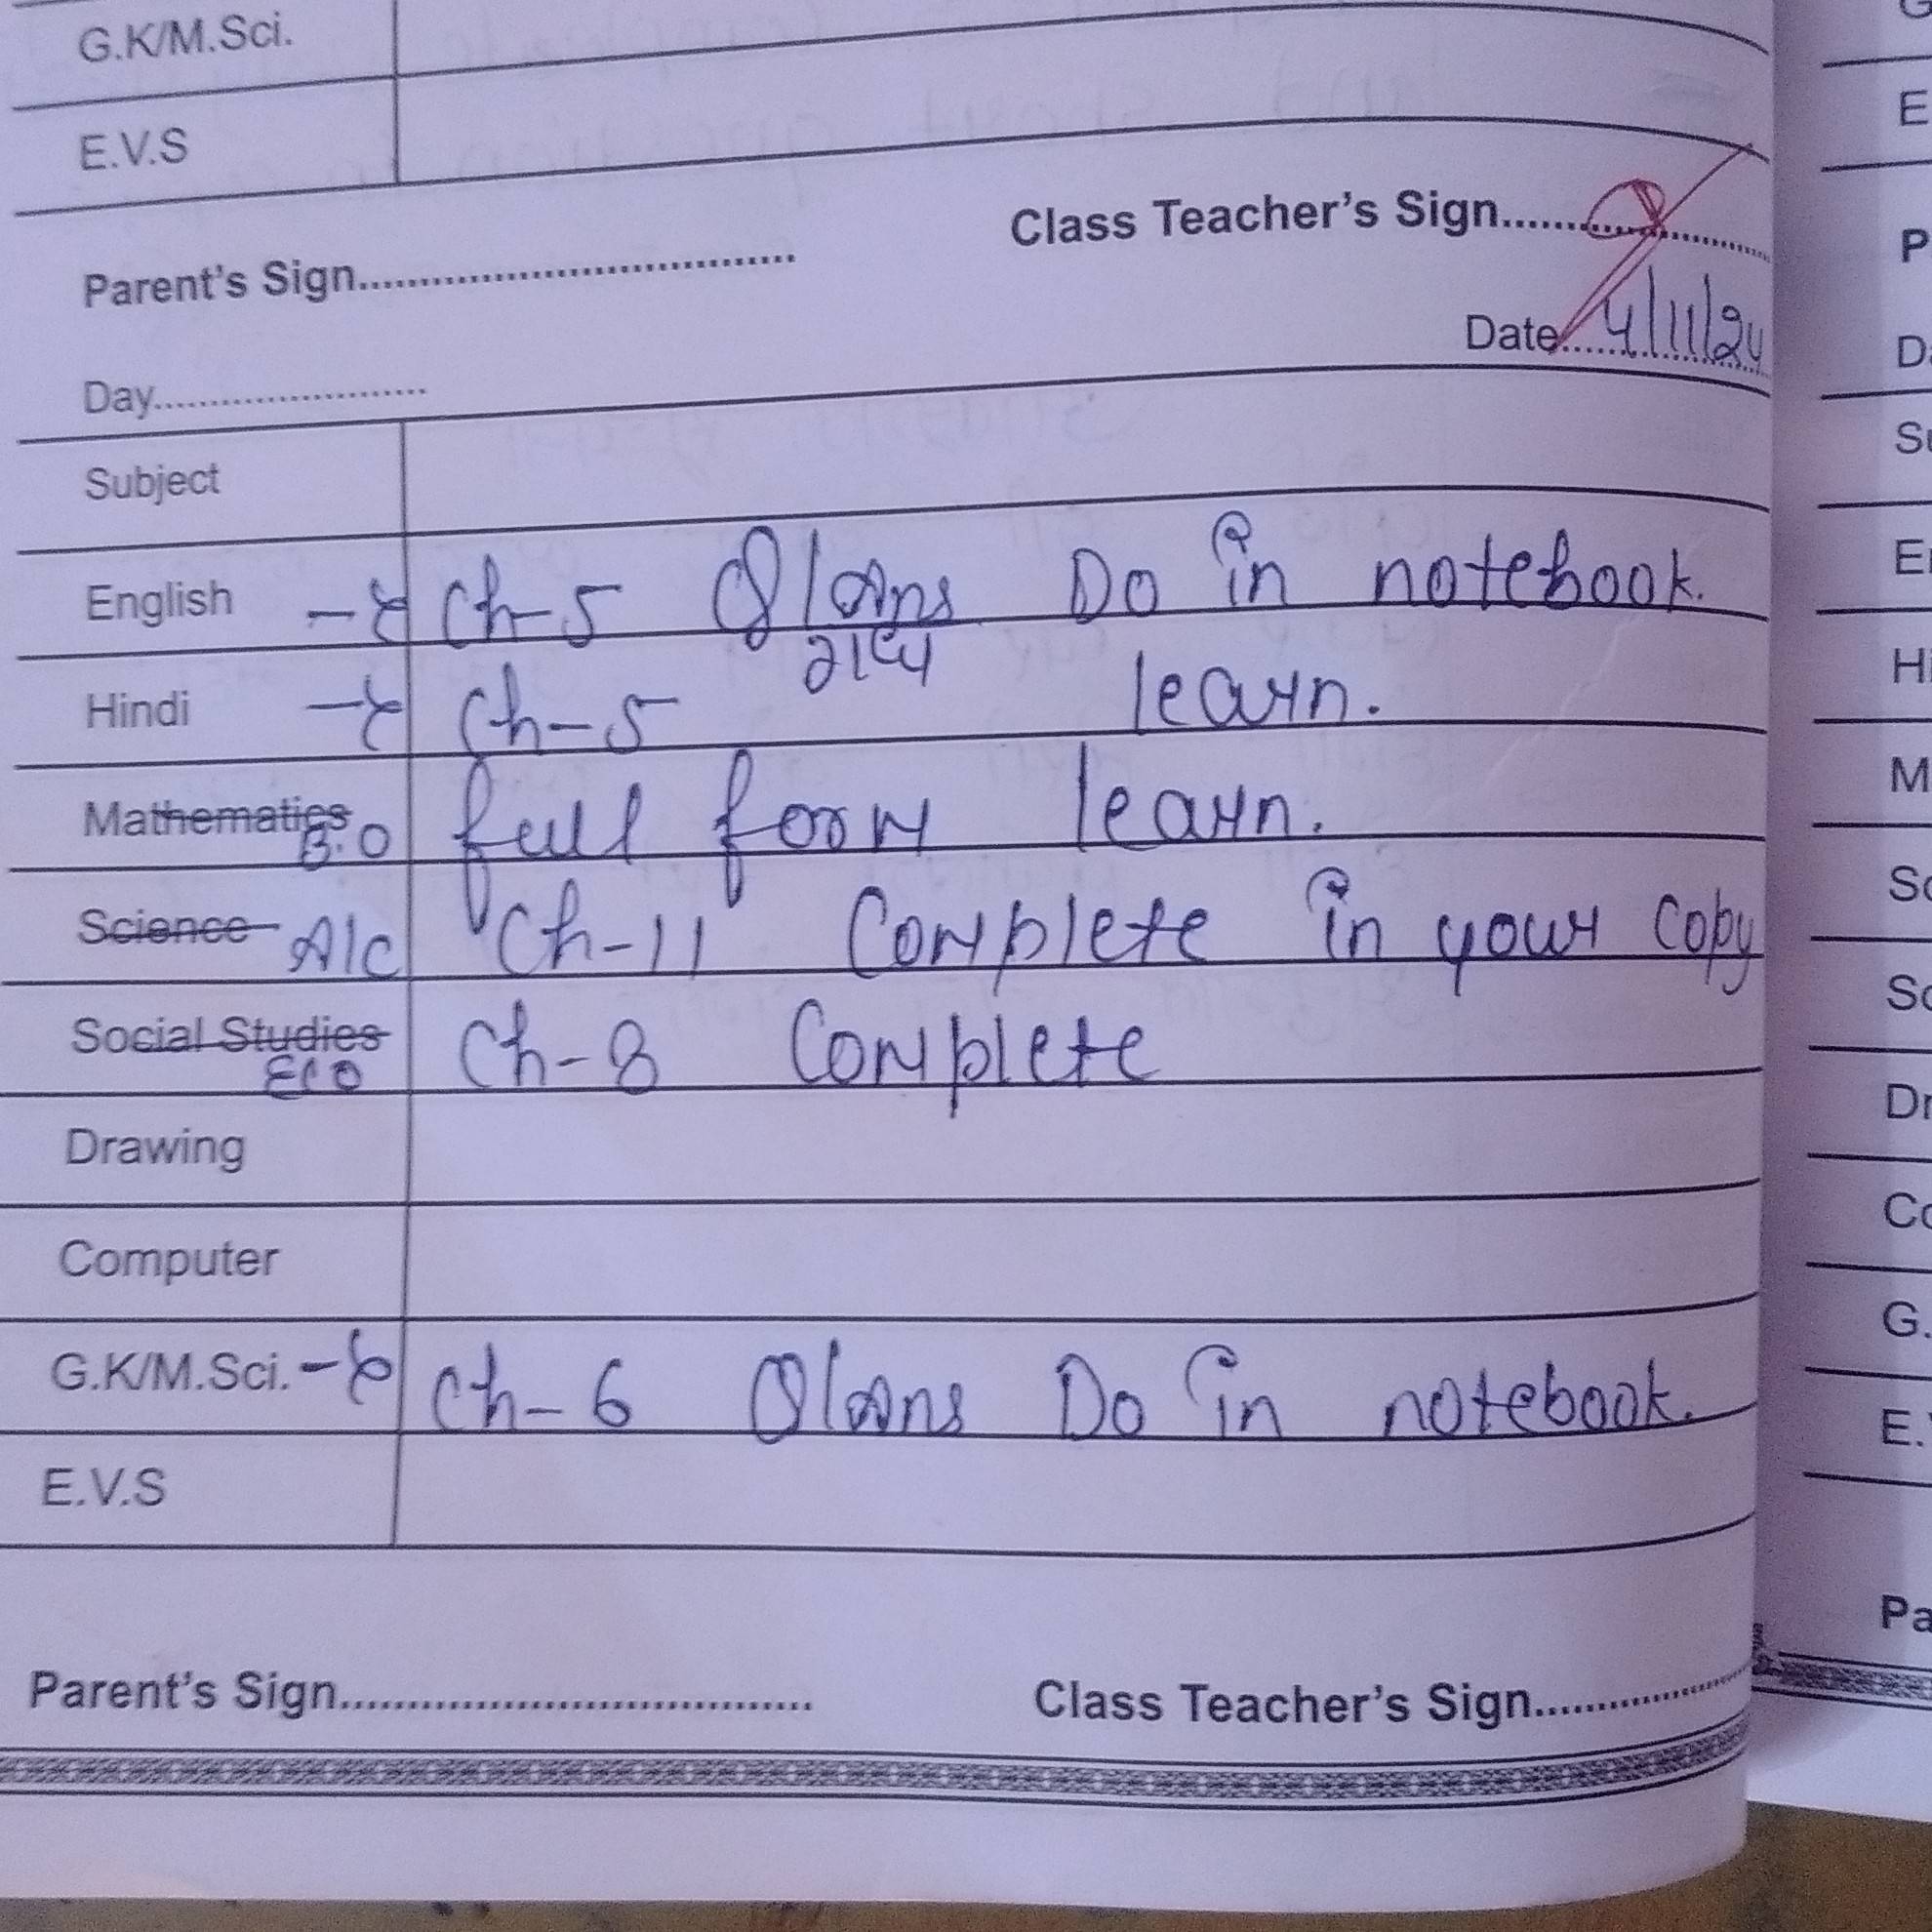 G.K/M.Sci.
E.V.S
Parent's Sign........ Class Teacher's Sign........
Day........ Date 4/11/24
Subject
English → Ch-5 Q/Ans Do in notebook.
Hindi → Ch-5 गद्य learn.
Mathematics B.O full form learn.
Science A/c Ch-11 Complete in your copy
Social Studies Eco Ch-8 Complete
Drawing
Computer
G.K/M.Sci. → Ch-6 Q/Ans Do in notebook.
E.V.S
Parent's Sign........ Class Teacher's Sign........